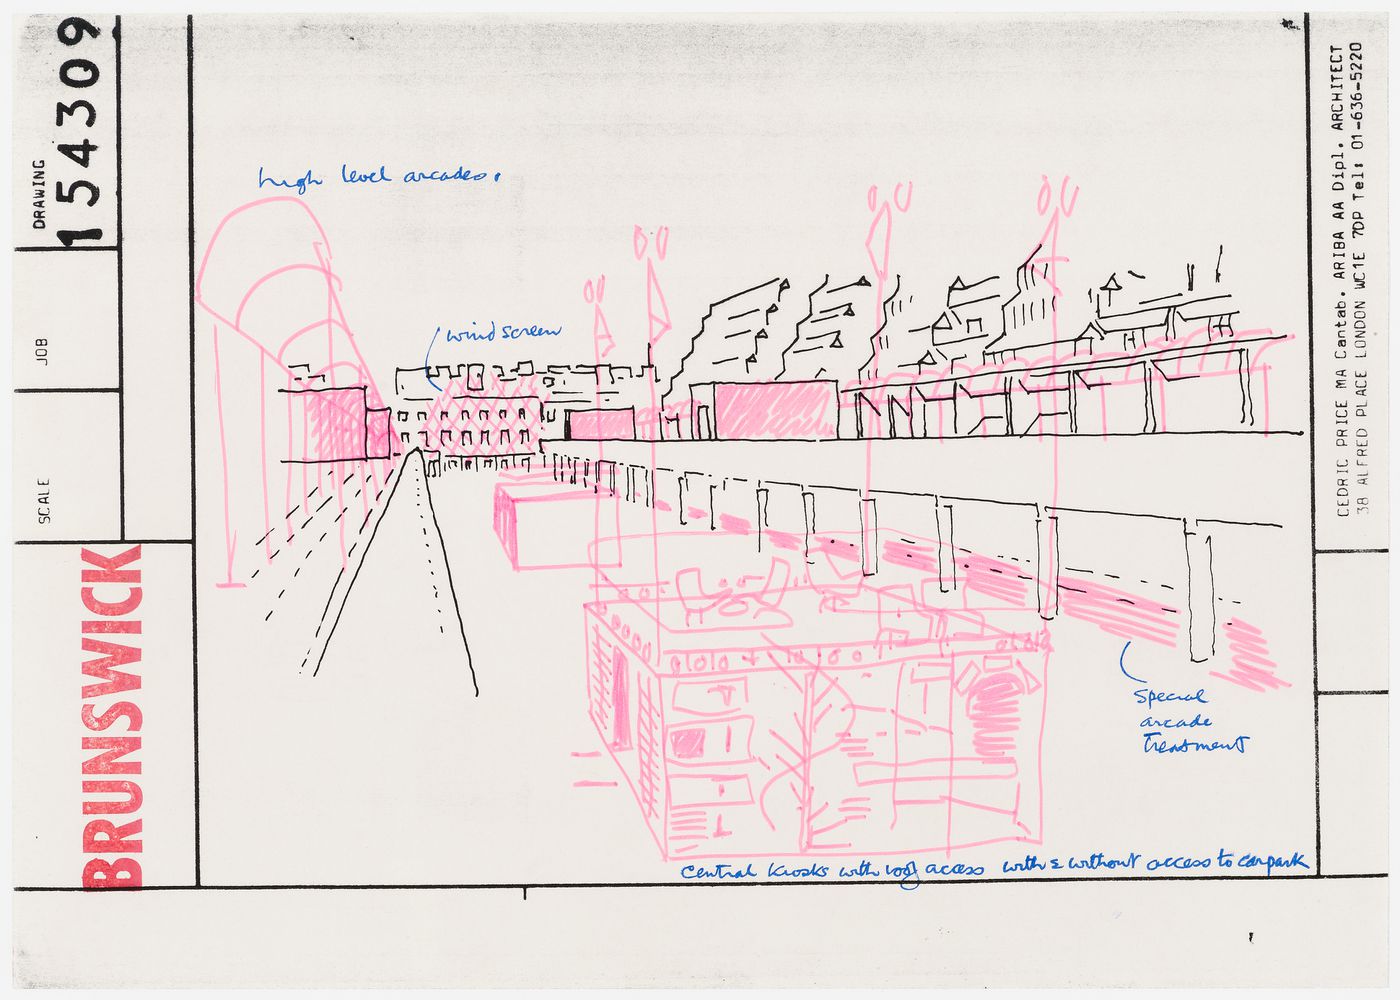 DRAWING
154309
JOB
SCALE
BRUNSWICK
high level arcades.
windscreen
special
arcade
treatment
central kiosks with roof access with & without access to carpark
CEDRIC PRICE MA Cantab. ARIBA AA Dipl. ARCHITECT
38 ALFRED PLACE LONDON WC1E 7DP Tel: 01-636-5220